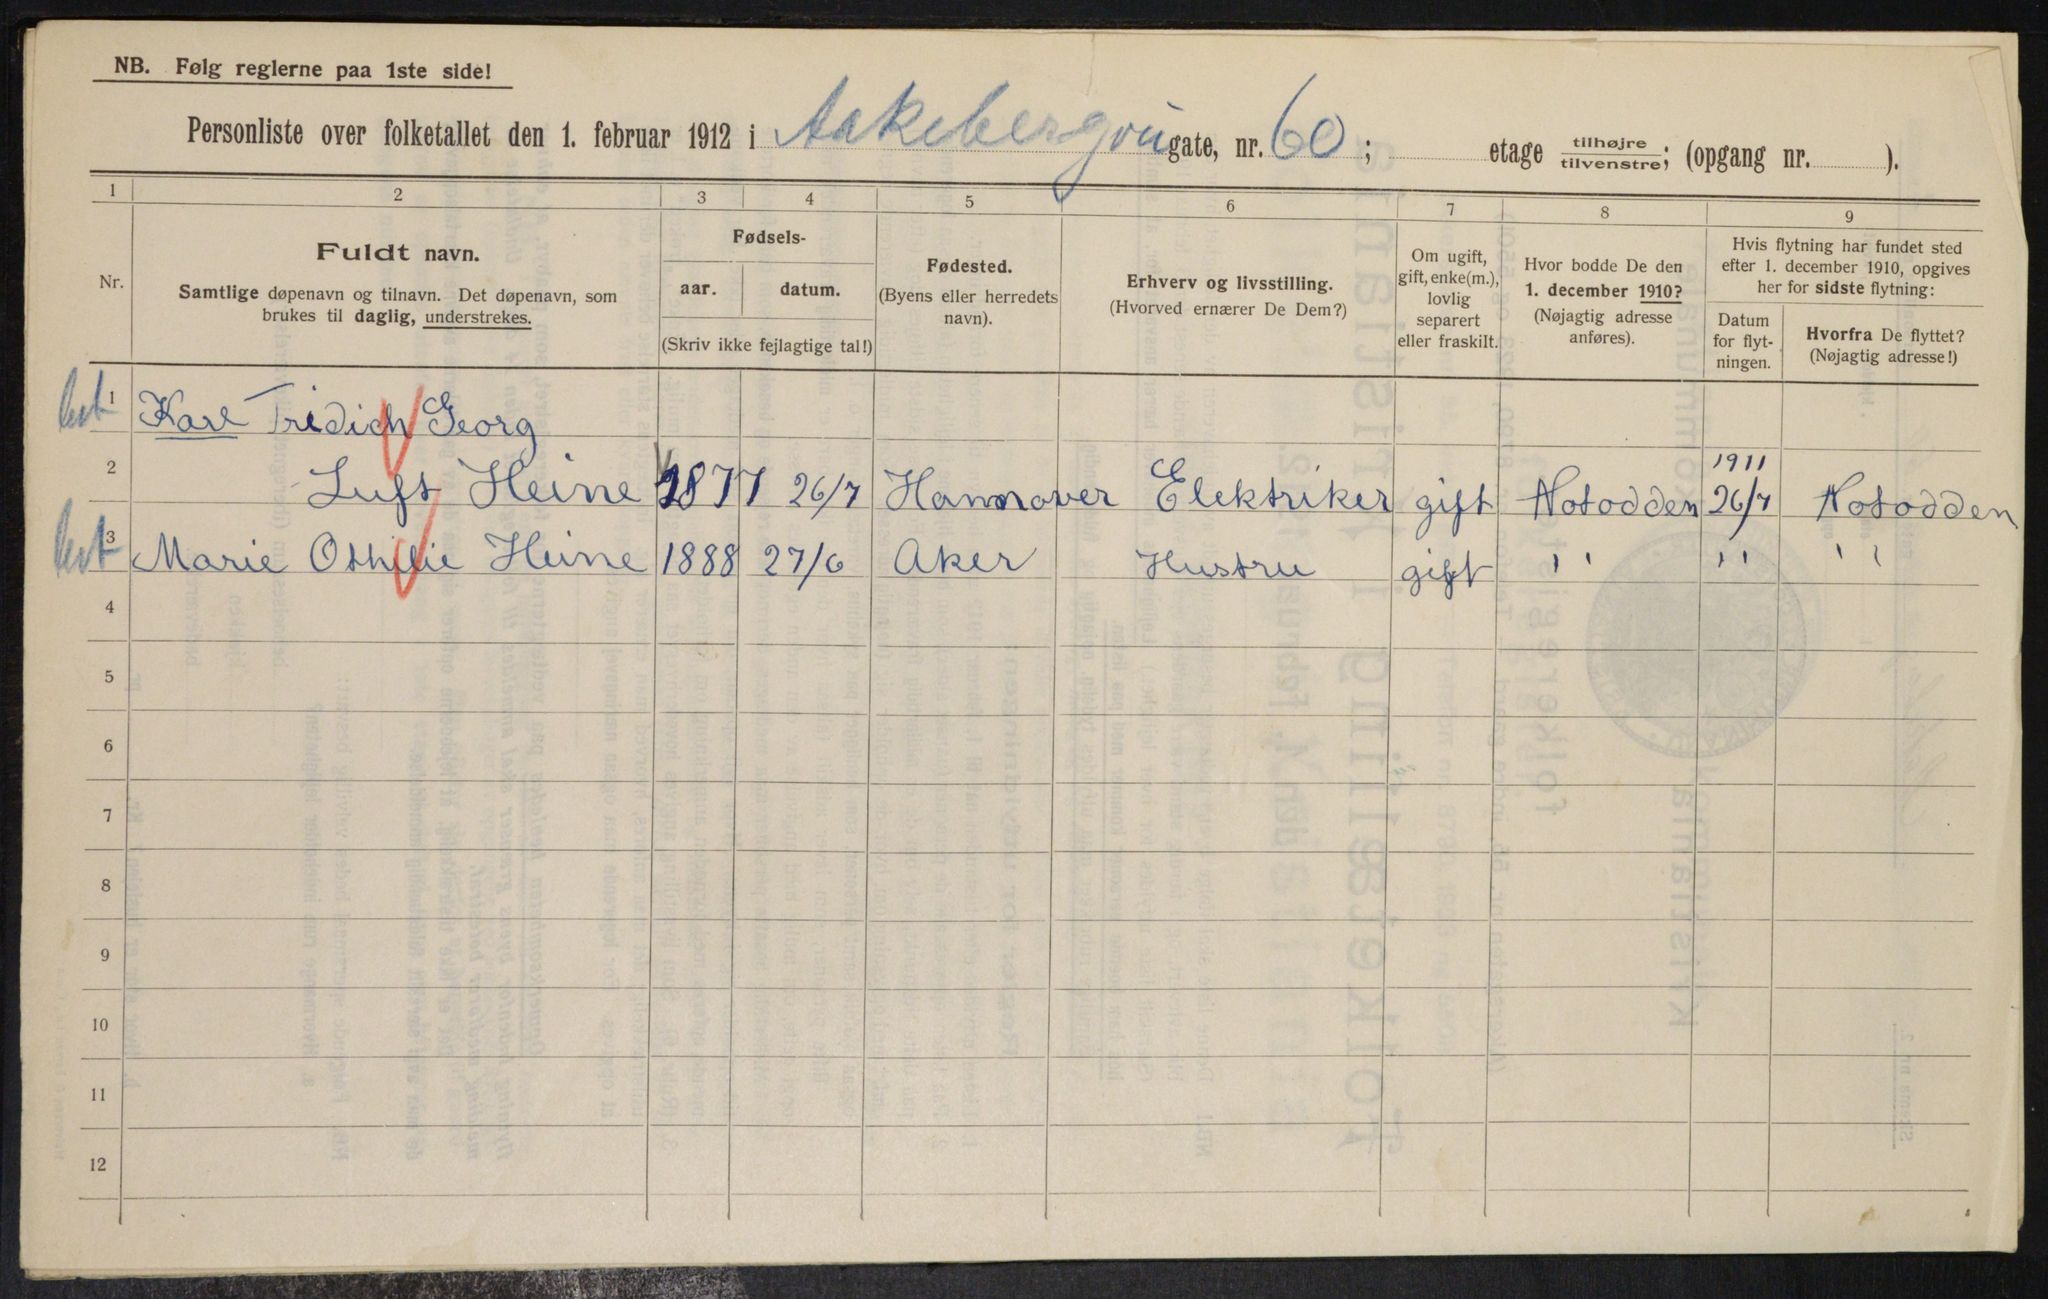 NB. Følg reglerne paa 1ste side!
Personliste over folketallet den 1. februar 1912 i Aakebergvei gate, nr. 60; etage tilhøjre/tilvenstre; (opgang nr. ).
1 2 3 4 5 6 7 8 9
Nr.
Fuldt navn.
Samtlige døpenavn og tilnavn. Det døpenavn, som
brukes til daglig, understrekes.
Fødsels-
aar. datum.
(Skriv ikke fejlagtige tal!)
Fødested.
(Byens eller herredets
navn).
Erhverv og livsstilling.
(Hvorved ernærer De Dem?)
Om ugift,
gift, enke(m.),
lovlig
separert
eller fraskilt.
Hvor bodde De den
1. december 1910?
(Nøjagtig adresse
anføres).
Hvis flytning har fundet sted
efter 1. december 1910, opgives
her for sidste flytning:
Datum
for flyt-
ningen.
Hvorfra De flyttet?
(Nøjagtig adresse!)
1 Karl Fridich Georg
1911
2 Luft Heine 1877 26/7 Hannover Elektriker gift Notodden 26/7 Notodden
3 Marie Othilie Heine 1888 27/6 Aker Hustru gift " " "
4
5
6
7
8
9
10
11
12